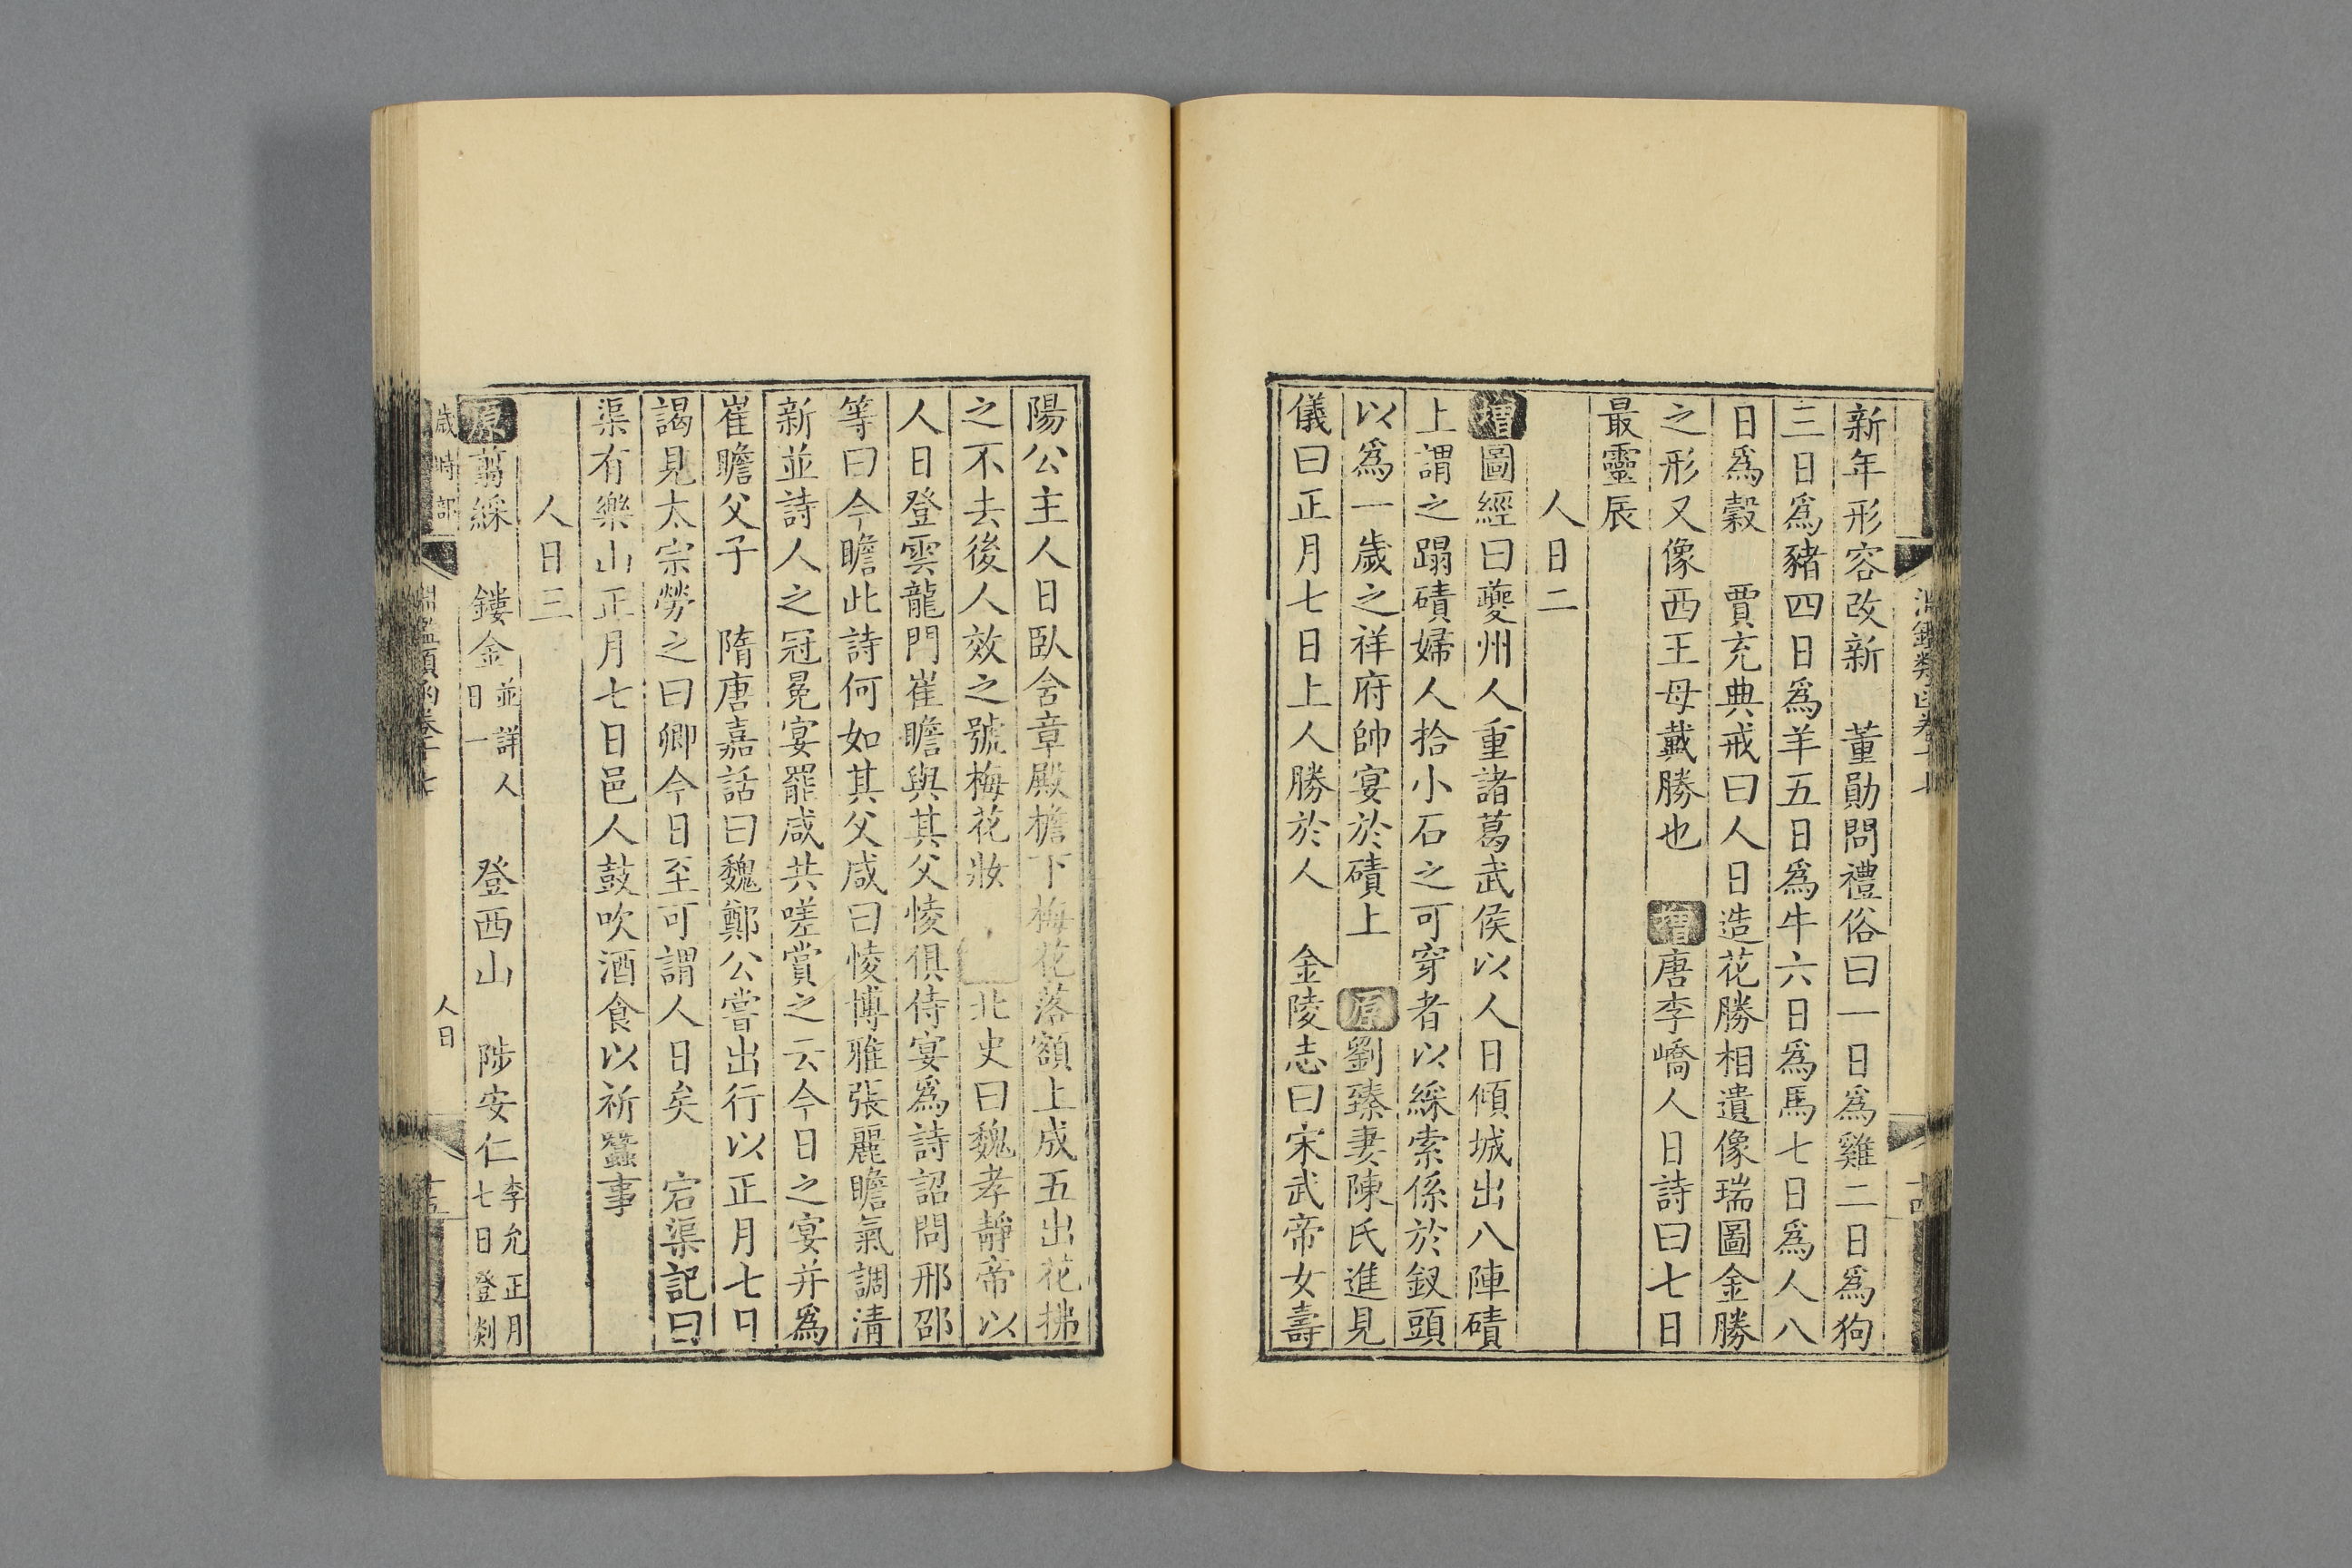 淵鑑類函卷十七
新年形容改新　董勛問禮俗曰一日爲雞二日爲狗
三日爲豬四日爲羊五日爲牛六日爲馬七日爲人八
日爲穀　賈充典戒曰人日造花勝相遺像瑞圖金勝
之形又像西王母戴勝也　增唐李嶠人日詩曰七日
最靈辰
人日二
增圖經曰夔州人重諸葛武侯以人日傾城出八陣磧
上謂之蹋磧婦人拾小石之可穿者以綵索係於釵頭
以爲一歲之祥府帥宴於磧上　原劉臻妻陳氏進見
儀曰正月七日上人勝於人　金陵志曰宋武帝女壽
陽公主人日臥含章殿檐下梅花落額上成五出花拂
之不去後人效之號梅花妝　北史曰魏孝靜帝以
人日登雲龍門崔瞻與其父㥄俱侍宴爲詩詔問邢邵
等曰今瞻此詩何如其父咸曰㥄博雅張麗瞻氣調清
新並詩人之冠冕宴罷咸共嗟賞之云今日之宴并爲
崔瞻父子　隋唐嘉話曰魏鄭公嘗出行以正月七日
謁見太宗勞之曰卿今日至可謂人日矣　宕渠記曰
渠有樂山正月七日邑人鼓吹酒食以祈蠶事
人日三
原翦綵　鏤金並詳人日一　登西山　陟安仁李允正月七日登剡
歲時部　淵鑑類函卷十七　人日　十五